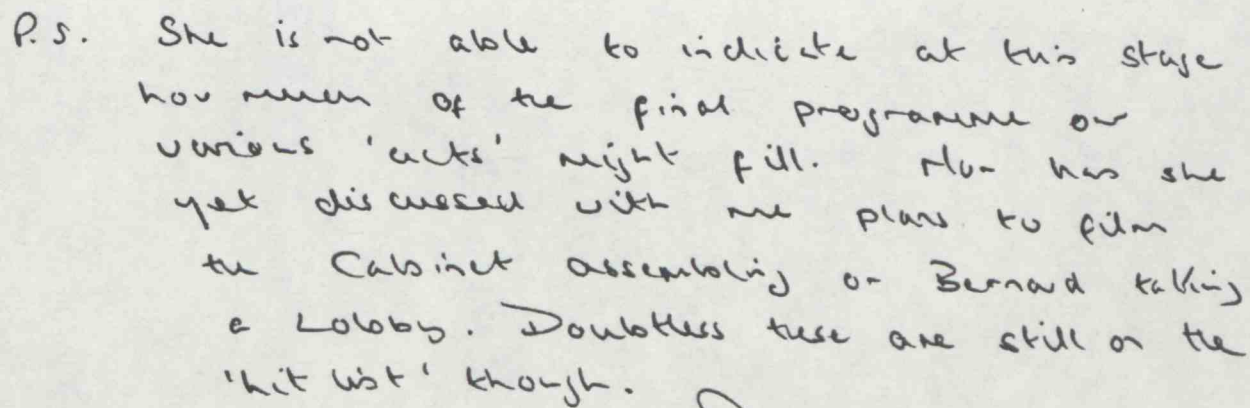 P.S. She is not able to indicate at this stage
how much of the final programme our
various 'acts' might fill. Nor has she
yet discussed with me plans to film
the Cabinet assembling or Bernard taking
a Lobby. Doubtless these are still on the
'hit list' though.